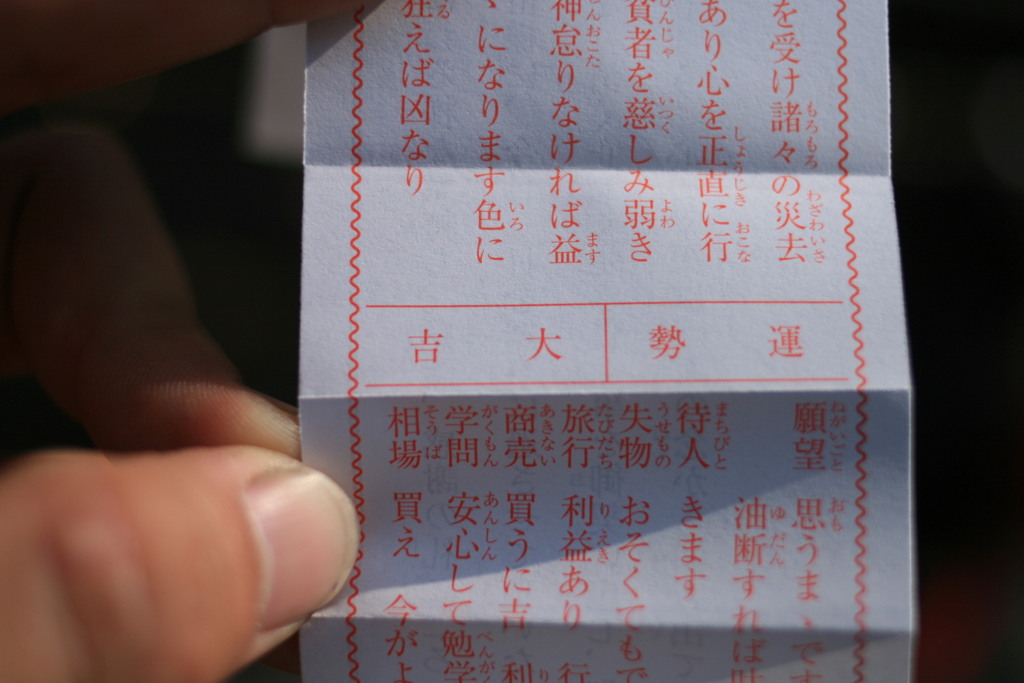 を受け諸々の災去
あり心を正直に行
貧者を慈しみ弱き
神怠りなければ益
ゝになります色に
狂えば凶なり
運勢
大吉
願望 思うまゝです
油断すれば
待人 きます
失物 おそくてもで
旅行 利益あり 行
商売 買うに吉 利
学問 安心して勉学
相場 買え 今がよ